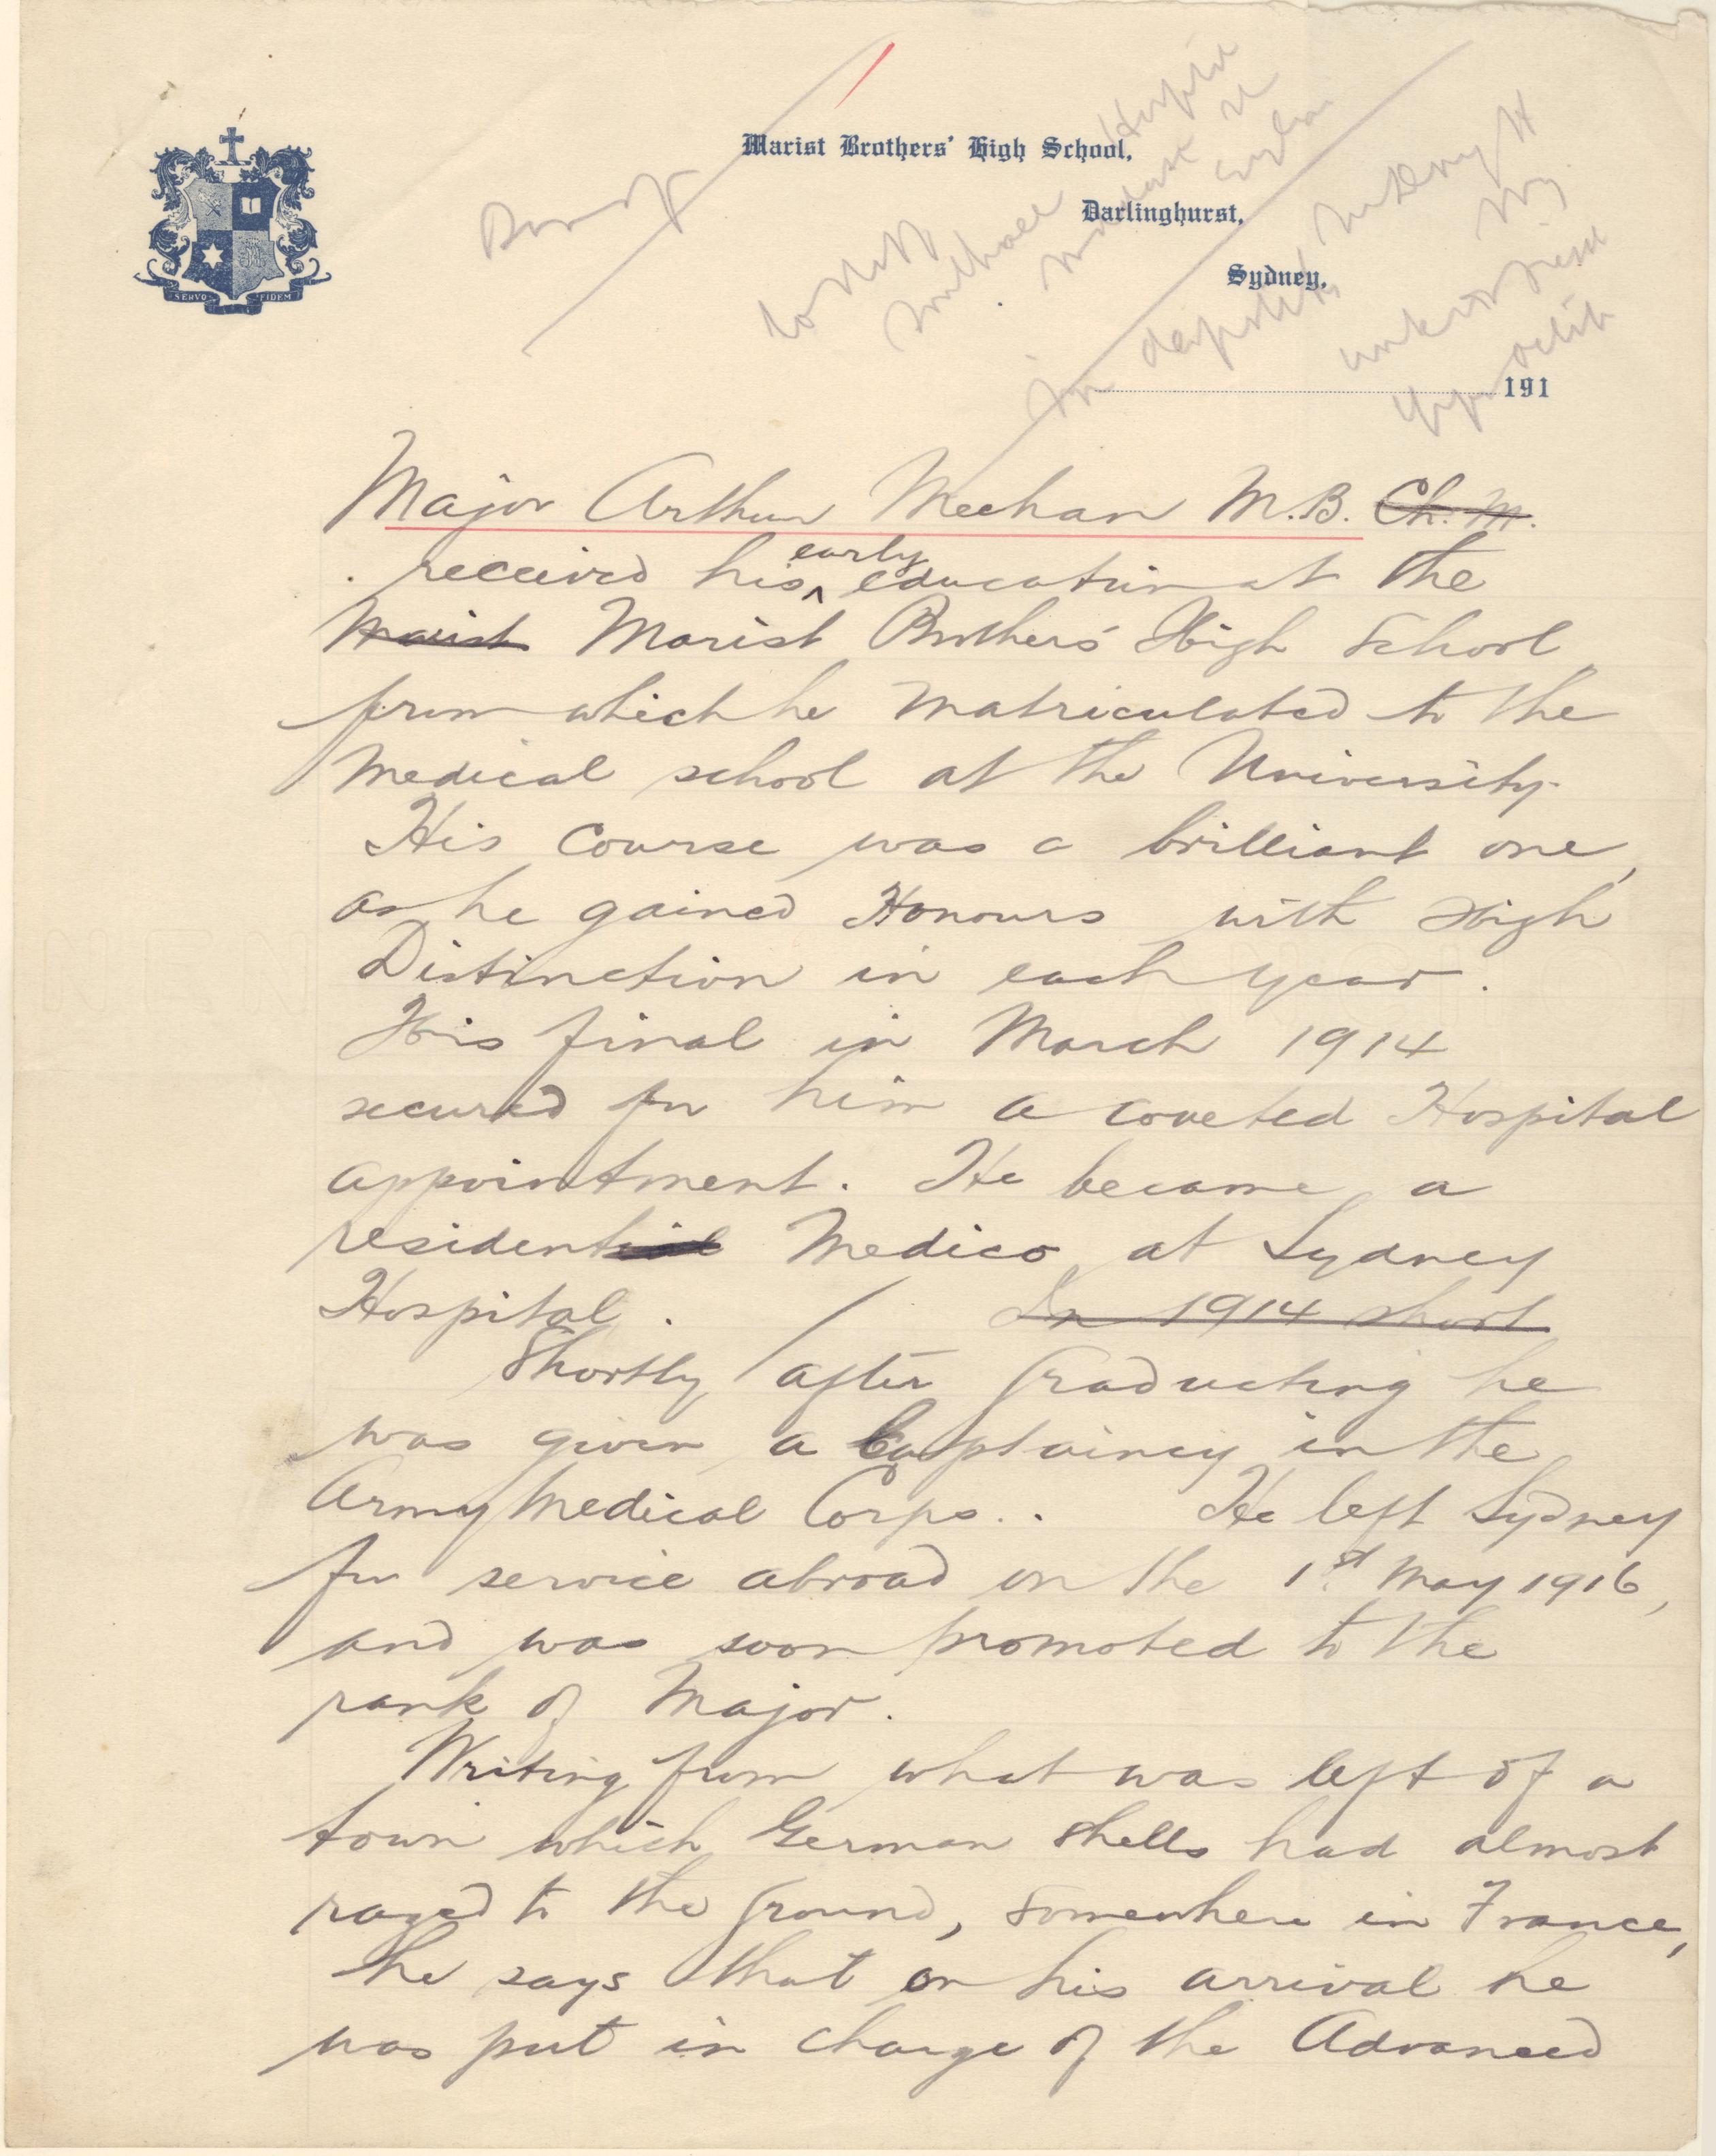 Marist Brothers' High School,
Darlinghurst,
Sydney,
SERVO FIDEM
191
Major Arthur Meehan M.B. Ch. M.
received his early education at the
Marist Marist Brothers' High School,
from which he matriculated to the
Medical school at the University.
His course was a brilliant one,
as he gained Honours with High
Distinction in each year.
His final in March 1914
secured for him a coveted Hospital
appointment. He became a
residential Medico at Sydney
Hospital. In 1914 short
Shortly after graduating he
was given a Captaincy in the
Army Medical Corps.. He left Sydney
for service abroad on the 1st May 1916,
and was soon promoted to the
rank of Major.
Writing from what was left of a
town which German shells had almost
razed to the ground, somewhere in France,
he says that on his arrival he
was put in charge of the Advanced